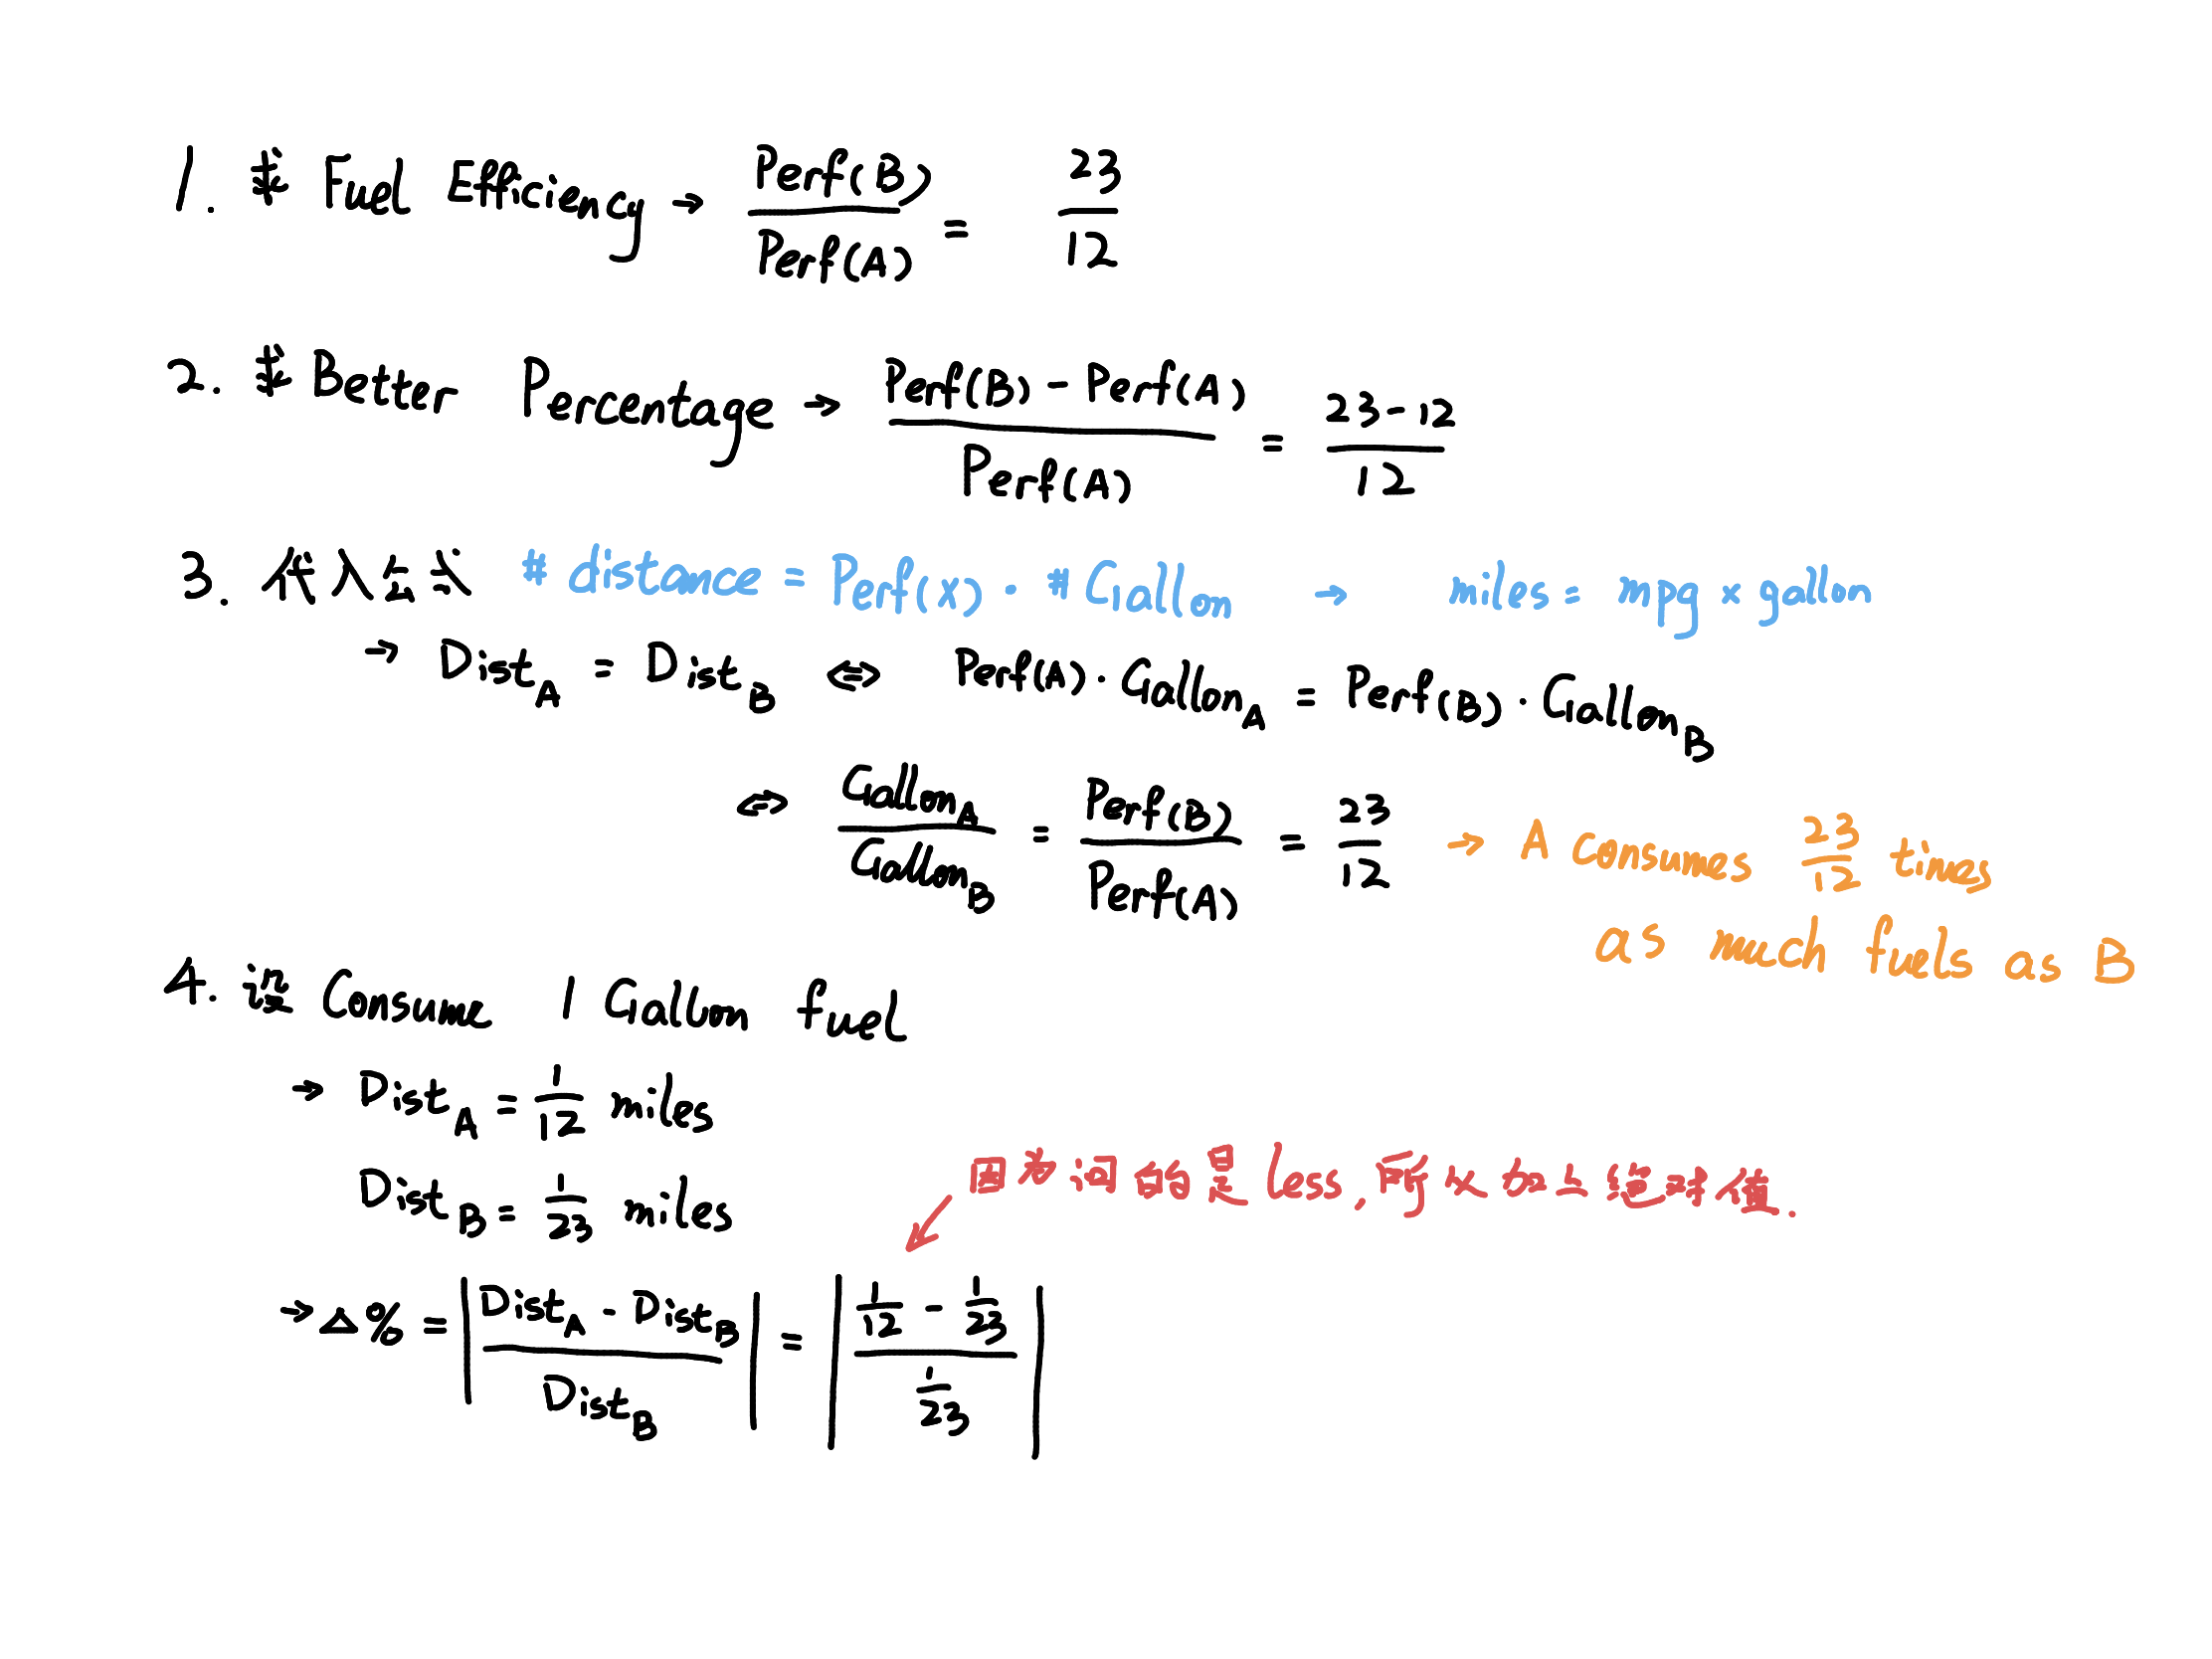 1. 求 Fuel Efficiency → Perf(B)/Perf(A) = 23/12
2. 求 Better Percentage → (Perf(B) - Perf(A))/Perf(A) = (23-12)/12
3. 代入公式 # distance = Perf(X) · # Gallon → miles = mpg × gallon
→ Dist_A = Dist_B ⇔ Perf(A) · Gallon_A = Perf(B) · Gallon_B
⇔ Gallon_A/Gallon_B = Perf(B)/Perf(A) = 23/12 → A consumes 23/12 times
as much fuels as B
4. 设 Consume 1 Gallon fuel
→ Dist_A = 1/12 miles
Dist_B = 1/23 miles
因为问的是 less, 所以加上绝对值.
→ △% = |(Dist_A - Dist_B)/Dist_B| = |(1/12 - 1/23)/(1/23)|